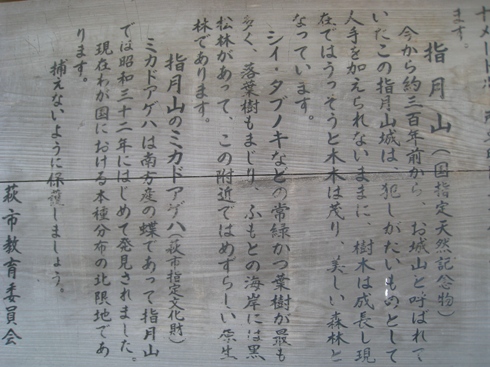 ます。
指月山(国指定天然記念物)
今から約三百年前から、お城山と呼ばれて
いたこの指月山城は、犯しがたいものとして
人手を加えられないままに、樹木は成長し現
在ではうっそうと木木は茂り、美しい森林と
なっています。
シイ・タブノキなどの常緑かつ葉樹が最も
多く、落葉樹もまじり、ふもとの海岸には黒
松林があって、この附近ではめずらしい原生
林であります。
指月山のミカドアゲハ(萩市指定文化財)
ミカドアゲハは南方産の蝶であって指月山
では昭和三十二年にはじめて発見されました。
現在わが国における本種分布の北限地であ
ります。
捕えないように保護しましょう。
萩市教育委員会